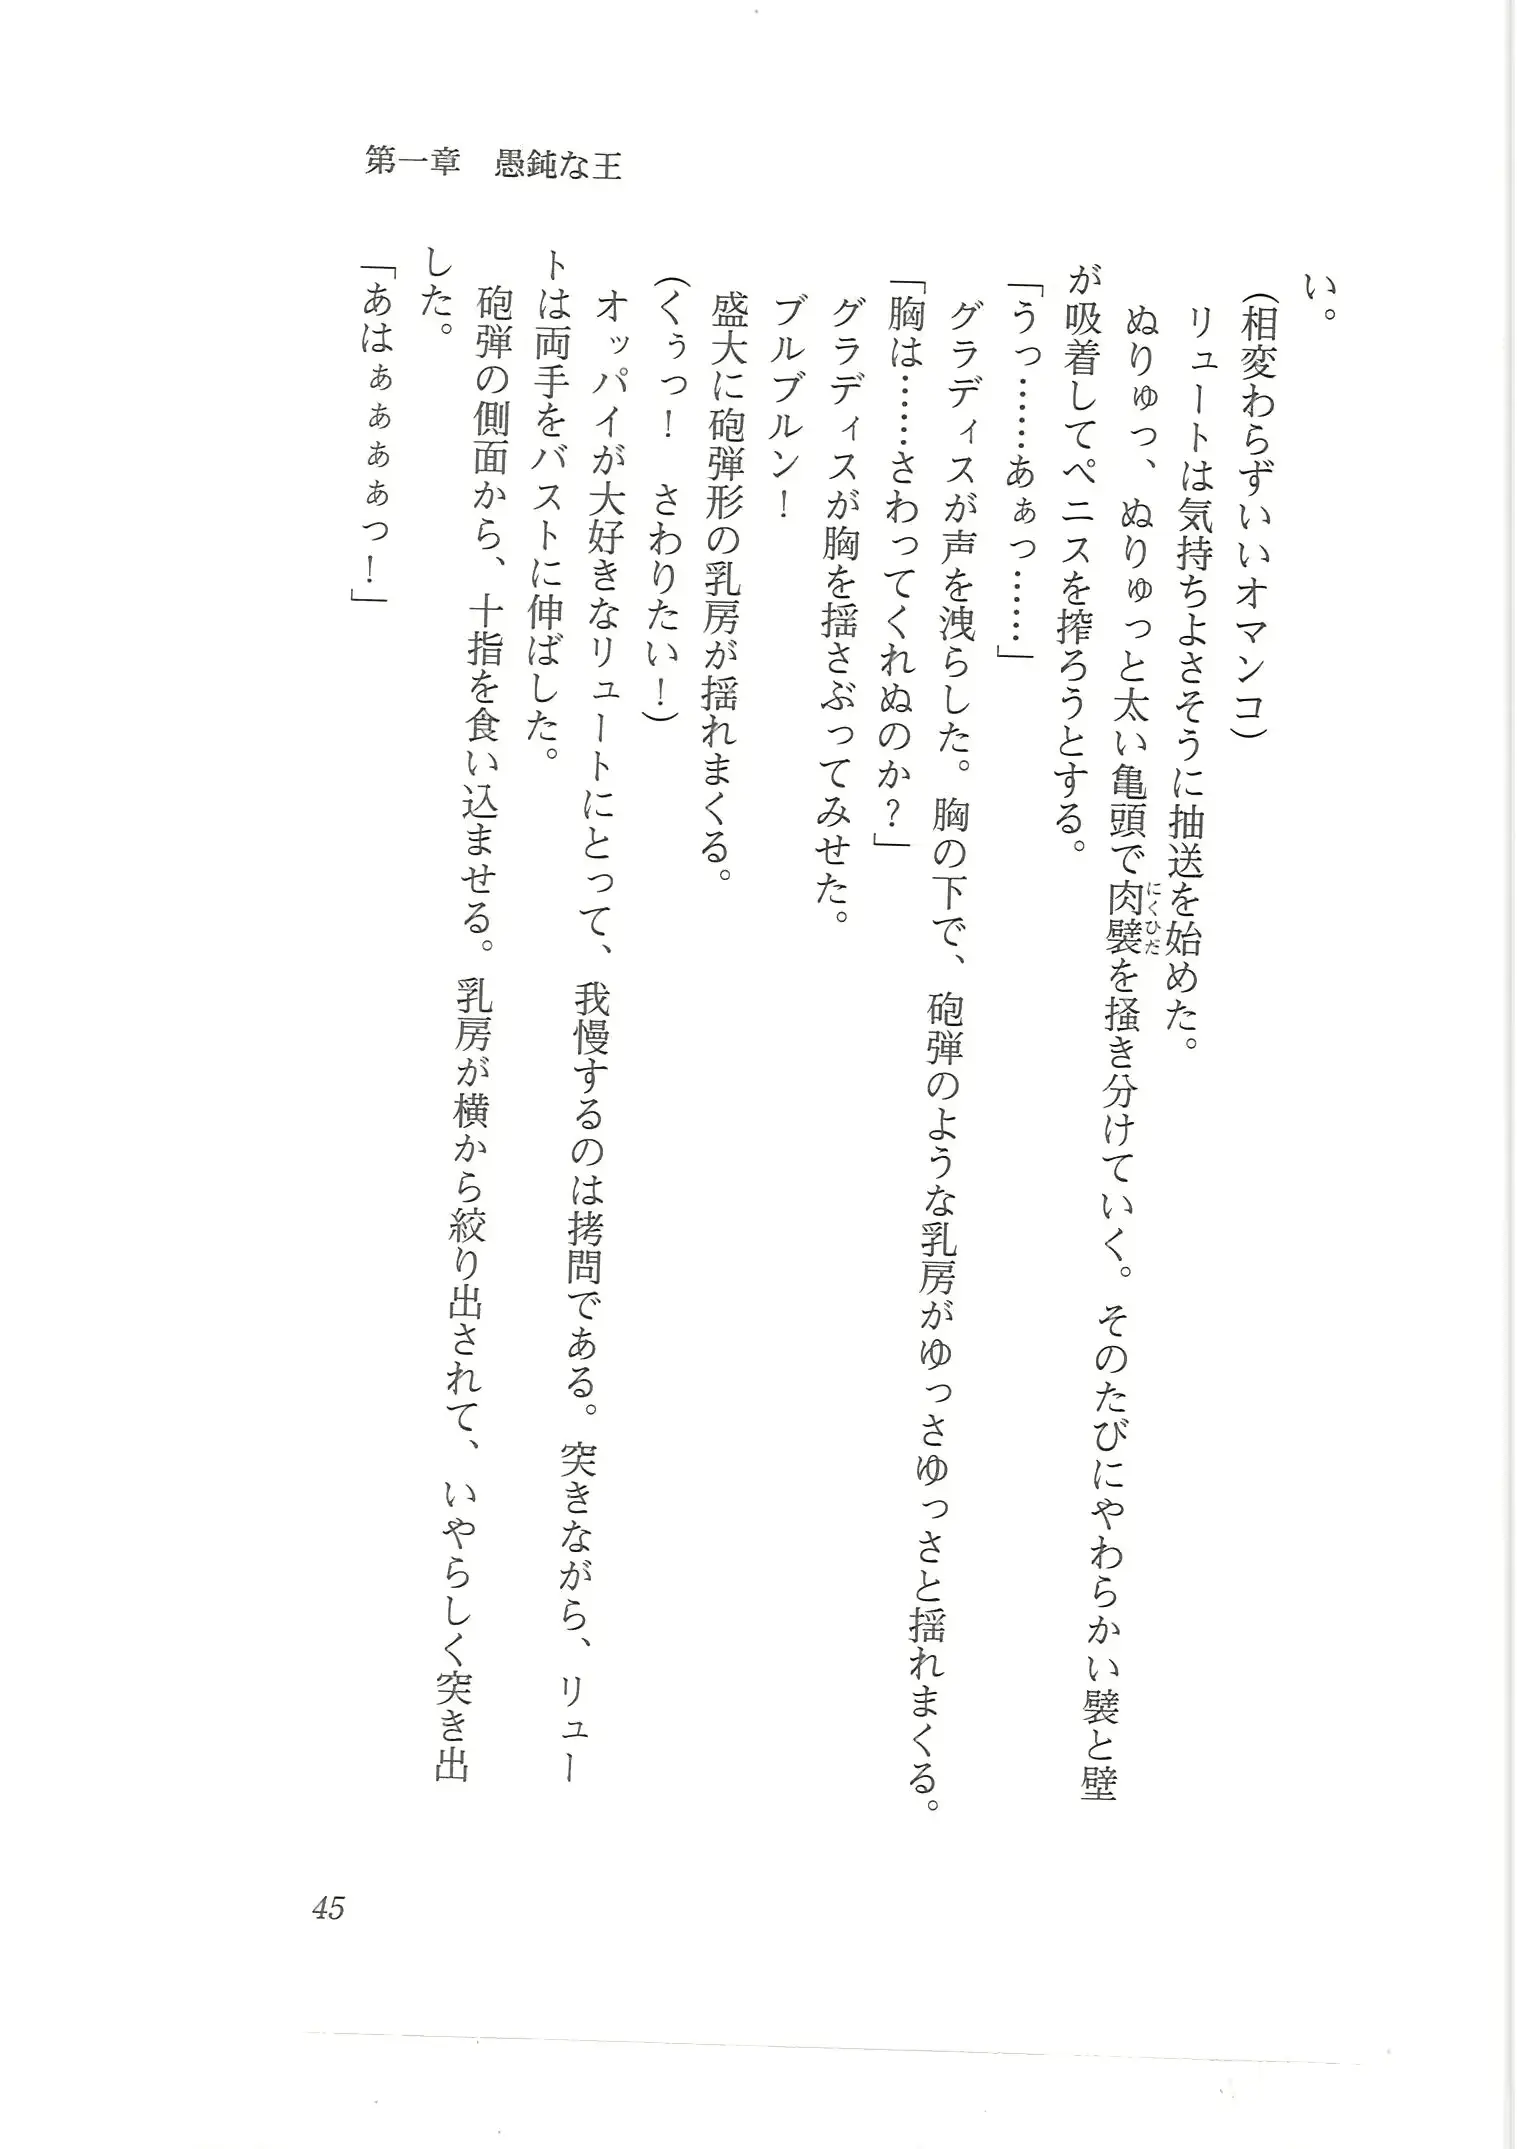 第一章　愚鈍な王
い。
（相変わらずいいオマンコ）
リュートは気持ちよさそうに抽送を始めた。
ぬりゅっ、ぬりゅっと太い亀頭で肉襞を掻き分けていく。そのたびにやわらかい襞と壁
にくひだ
が吸着してペニスを搾ろうとする。
「うっ……あぁっ……」
グラディスが声を洩らした。胸の下で、砲弾のような乳房がゆっさゆっさと揺れまくる。
「胸は……さわってくれぬのか？」
グラディスが胸を揺さぶってみせた。
ブルブルン！
盛大に砲弾形の乳房が揺れまくる。
（くぅっ！　さわりたい！）
オッパイが大好きなリュートにとって、我慢するのは拷問である。突きながら、リュー
トは両手をバストに伸ばした。
砲弾の側面から、十指を食い込ませる。乳房が横から絞り出されて、いやらしく突き出
した。
「あはぁぁぁぁっ！」
45